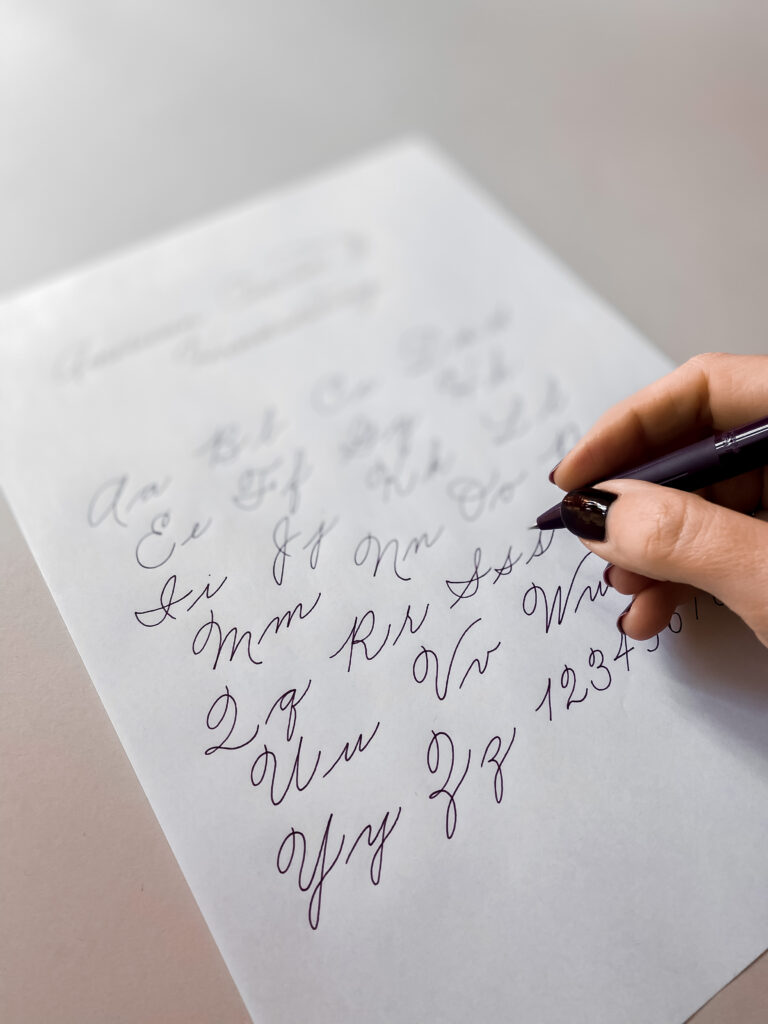 Aa Bb Cc
Ee Ff Gg Hh
Ii Jj Kk Ll
Mm Nn Oo P
Qq Rr Sss
Uu Vv Ww
Yy Zz 123456